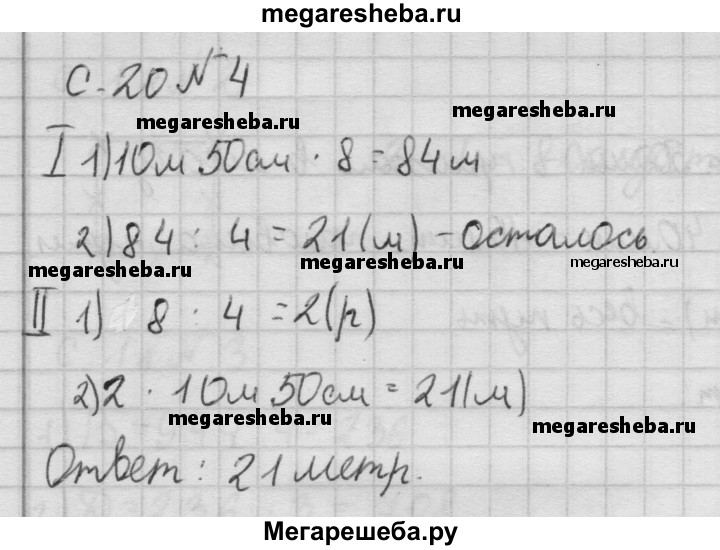 megaresheba.ru
С-20 № 4
megaresheba.ru
I 1) 10м 50см · 8 = 84 м
megaresheba.ru megaresheba.ru
2) 84 : 4 = 21 (м) - осталось
megaresheba.ru megaresheba.ru
II 1) 8 : 4 = 2 (р)
2) 2 · 10м 50см = 21 (м)
megaresheba.ru megaresheba.ru
Ответ: 21 метр.
Мегарешеба.ру